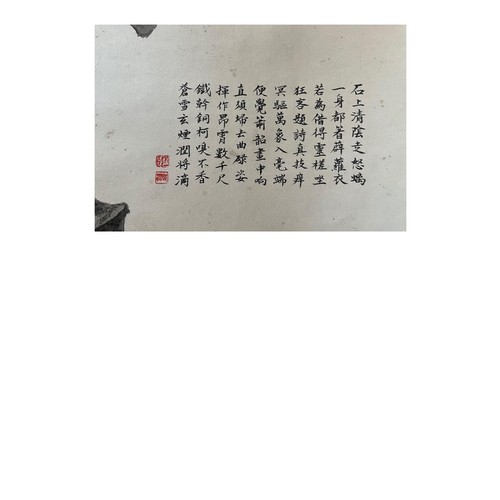 石上清陰走怒螭
一身都著薜蘿衣
若為借得靈槎坐
狂客題詩真技痒
冥驅萬象入毫端
便覺簫韶畫中向
直須埽去曲槃姿
揮作昂霄數千尺
鐵幹銅柯嗅不香
蒼雪玄煙潤將滴